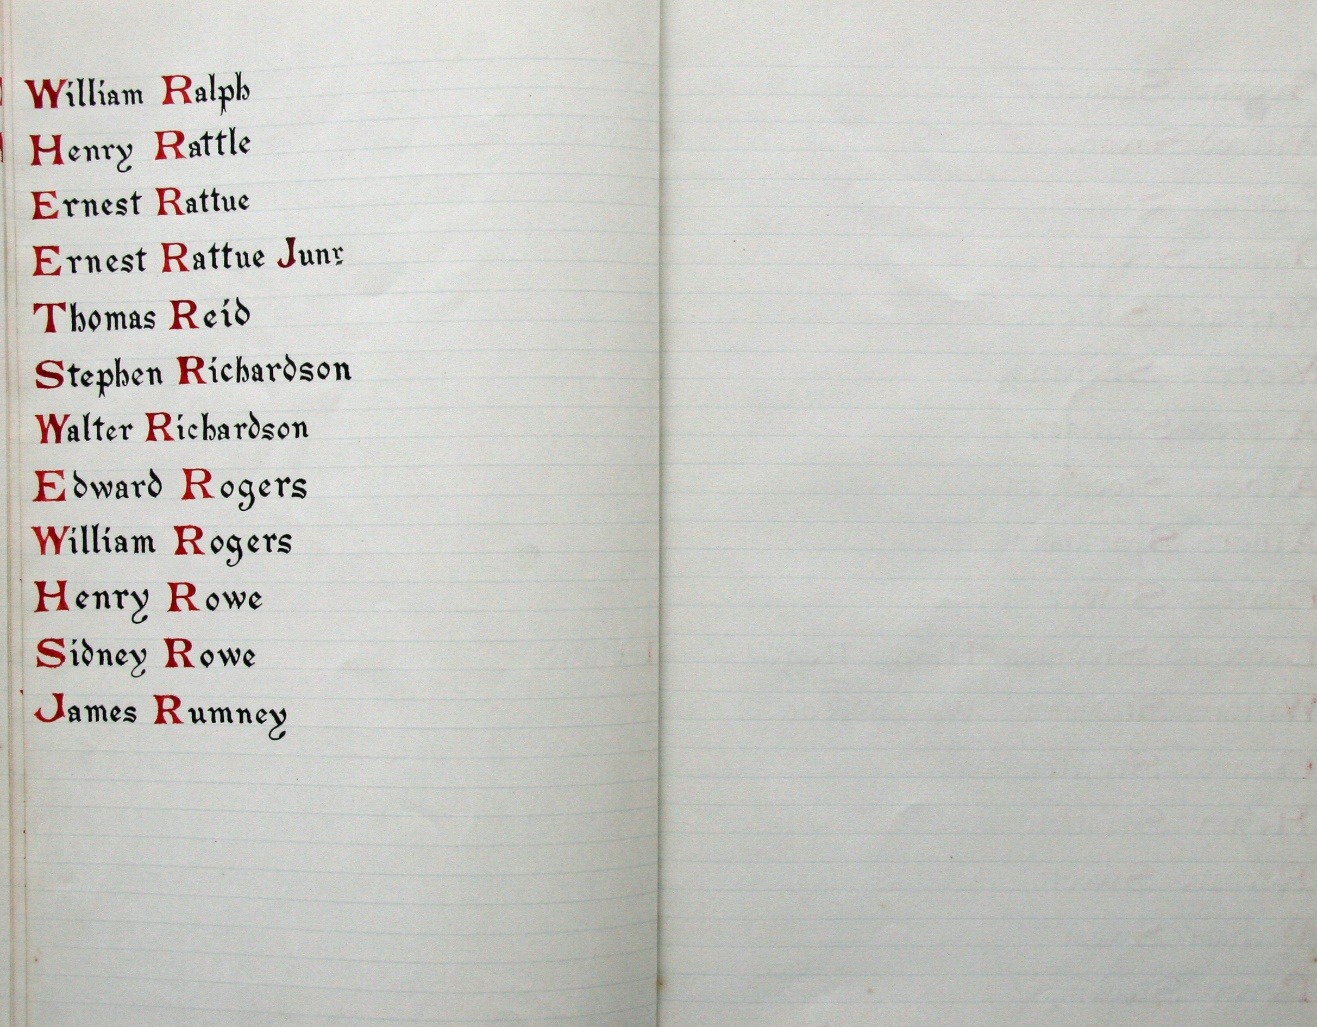 William Ralph
Henry Rattle
Ernest Rattue
Ernest Rattue Junr
Thomas Reid
Stephen Richardson
Walter Richardson
Edward Rogers
William Rogers
Henry Rowe
Sidney Rowe
James Rumney